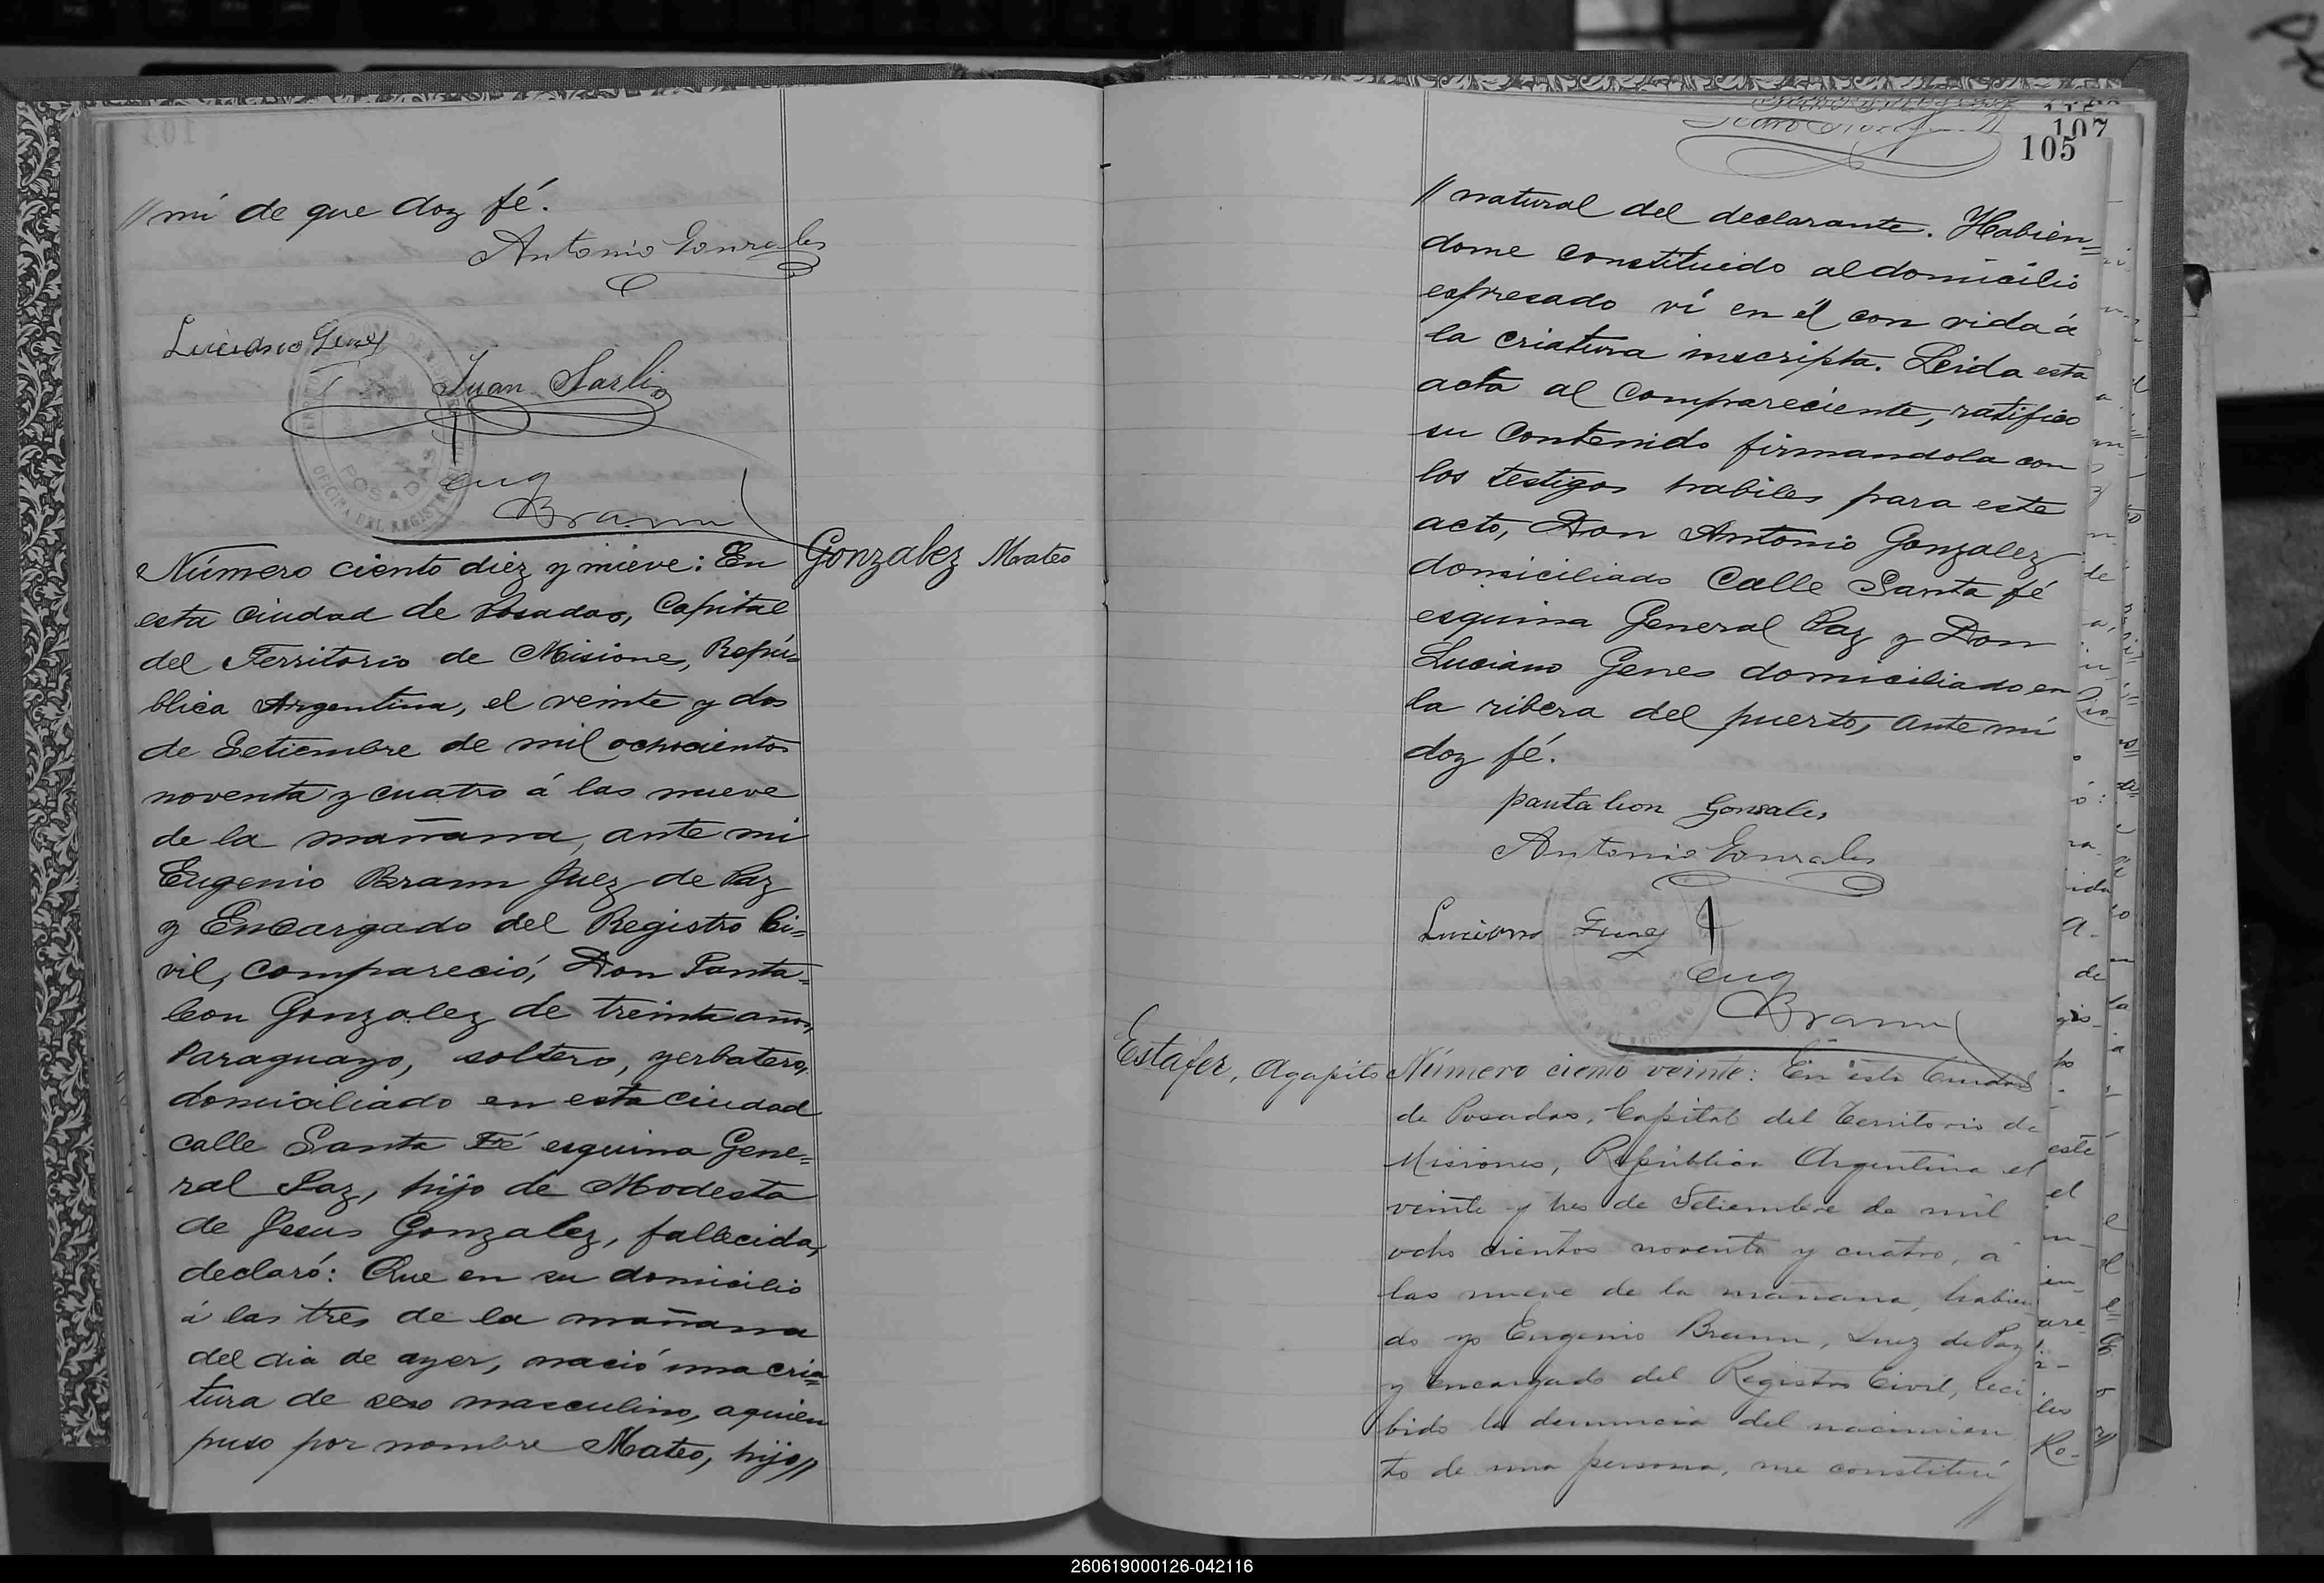 // mí de que doy fé.
Antonio Gonzales
Luciano Genes
Juan Sarli
POSADAS
OFICINA DEL REGISTRO
Eug
Braun
Número ciento diez y nueve: En
Gonzalez Mateo
esta Ciudad de Posadas, Capital
del Territorio de Misiones, Repú=
blica Argentina, el veinte y dos
de Setiembre de mil ochocientos
noventa y cuatro á las nueve
de la mañana, ante mi
Eugenio Braun Juez de Paz
y Encargado del Registro Ci=
vil, compareció, Don Panta=
leon Gonzalez de treinta años,
Paraguayo, soltero, yerbatero,
domiciliado en esta Ciudad
calle Santa Fé esquina Gene=
ral Paz, hijo de Modesta
de Jesus Gonzalez, fallecida,
declaró: Que en su domicilio
á las tres de la mañana
del dia de ayer, nació una cria=
tura de sexo masculino, a quien
puso por nombre Mateo, hijo//
107
105
// natural del declarante. Habien=
dome constituido al domicilio
espresado ví en él con vida á
la criatura inscripta. Leida esta
acta al compareciente, ratifico
su contenido firmandola con
los testigos habiles para este
acto, Don Antonio Gonzalez
domiciliado Calle Santa fé
esquina General Paz y Don
Luciano Genes domiciliado en
la ribera del puerto, ante mí
doy fé.
pantaleon Gonsales
Antonio Gonzales
Luciano Genes
Eug
Braun
Estafer, Agapito
Número ciento veinte: En esta Ciudad
de Posadas, Capital del Territorio de
Misiones, República Argentina el
veinte y tres de Setiembre de mil
ocho cientos noventa y cuatro, á
las nueve de la mañana, habien
do yo Eugenio Braun, Juez de Paz
y encargado del Registro Civil, reci
bido la denuncia del nacimien
to de una persona, me constituí
//
260619000126-042116